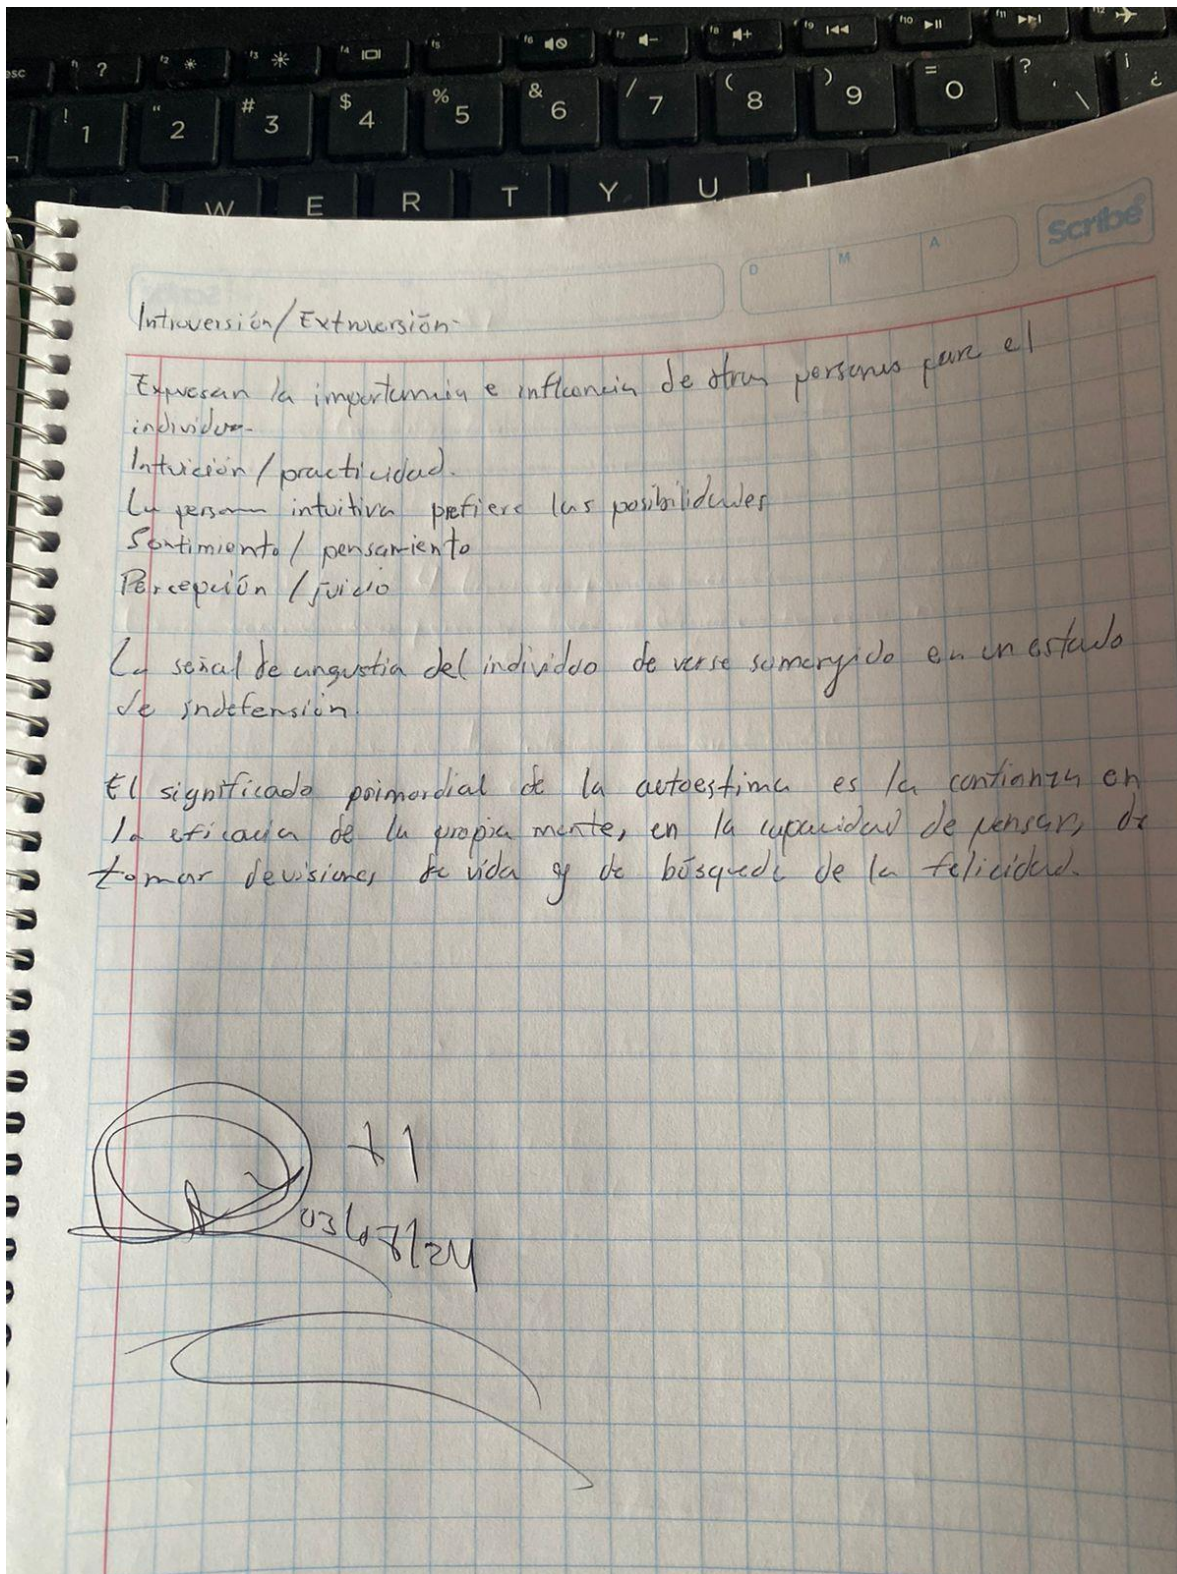 esc f1 ? f2 f3 f4 f5 f6 f7 f8 f9 f10 f11 f12
! 1 " 2 # 3 $ 4 % 5 & 6 / 7 ( 8 ) 9 = 0 ? ' \ ¡ ¿
W E R T Y U I
Scribe
D M A
Introversión/Extroversión
Expresan la importancia e influencia de otras personas para el
individuo.
Intuición/practicidad.
La persona intuitiva prefiere las posibilidades
Sentimiento/ pensamiento
Percepción /juicio
La señal de angustia del individuo de verse sumergido en un estado
de indefensión.
El significado primordial de la autoestima es la confianza en
la eficacia de la propia mente, en la capacidad de pensar, de
tomar decisiones de vida y de búsqueda de la felicidad.
+1
03/08/24